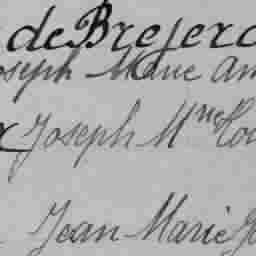 de Brejerc
oseph Marie Am
Joseph Mrie Cou
Jean Marie